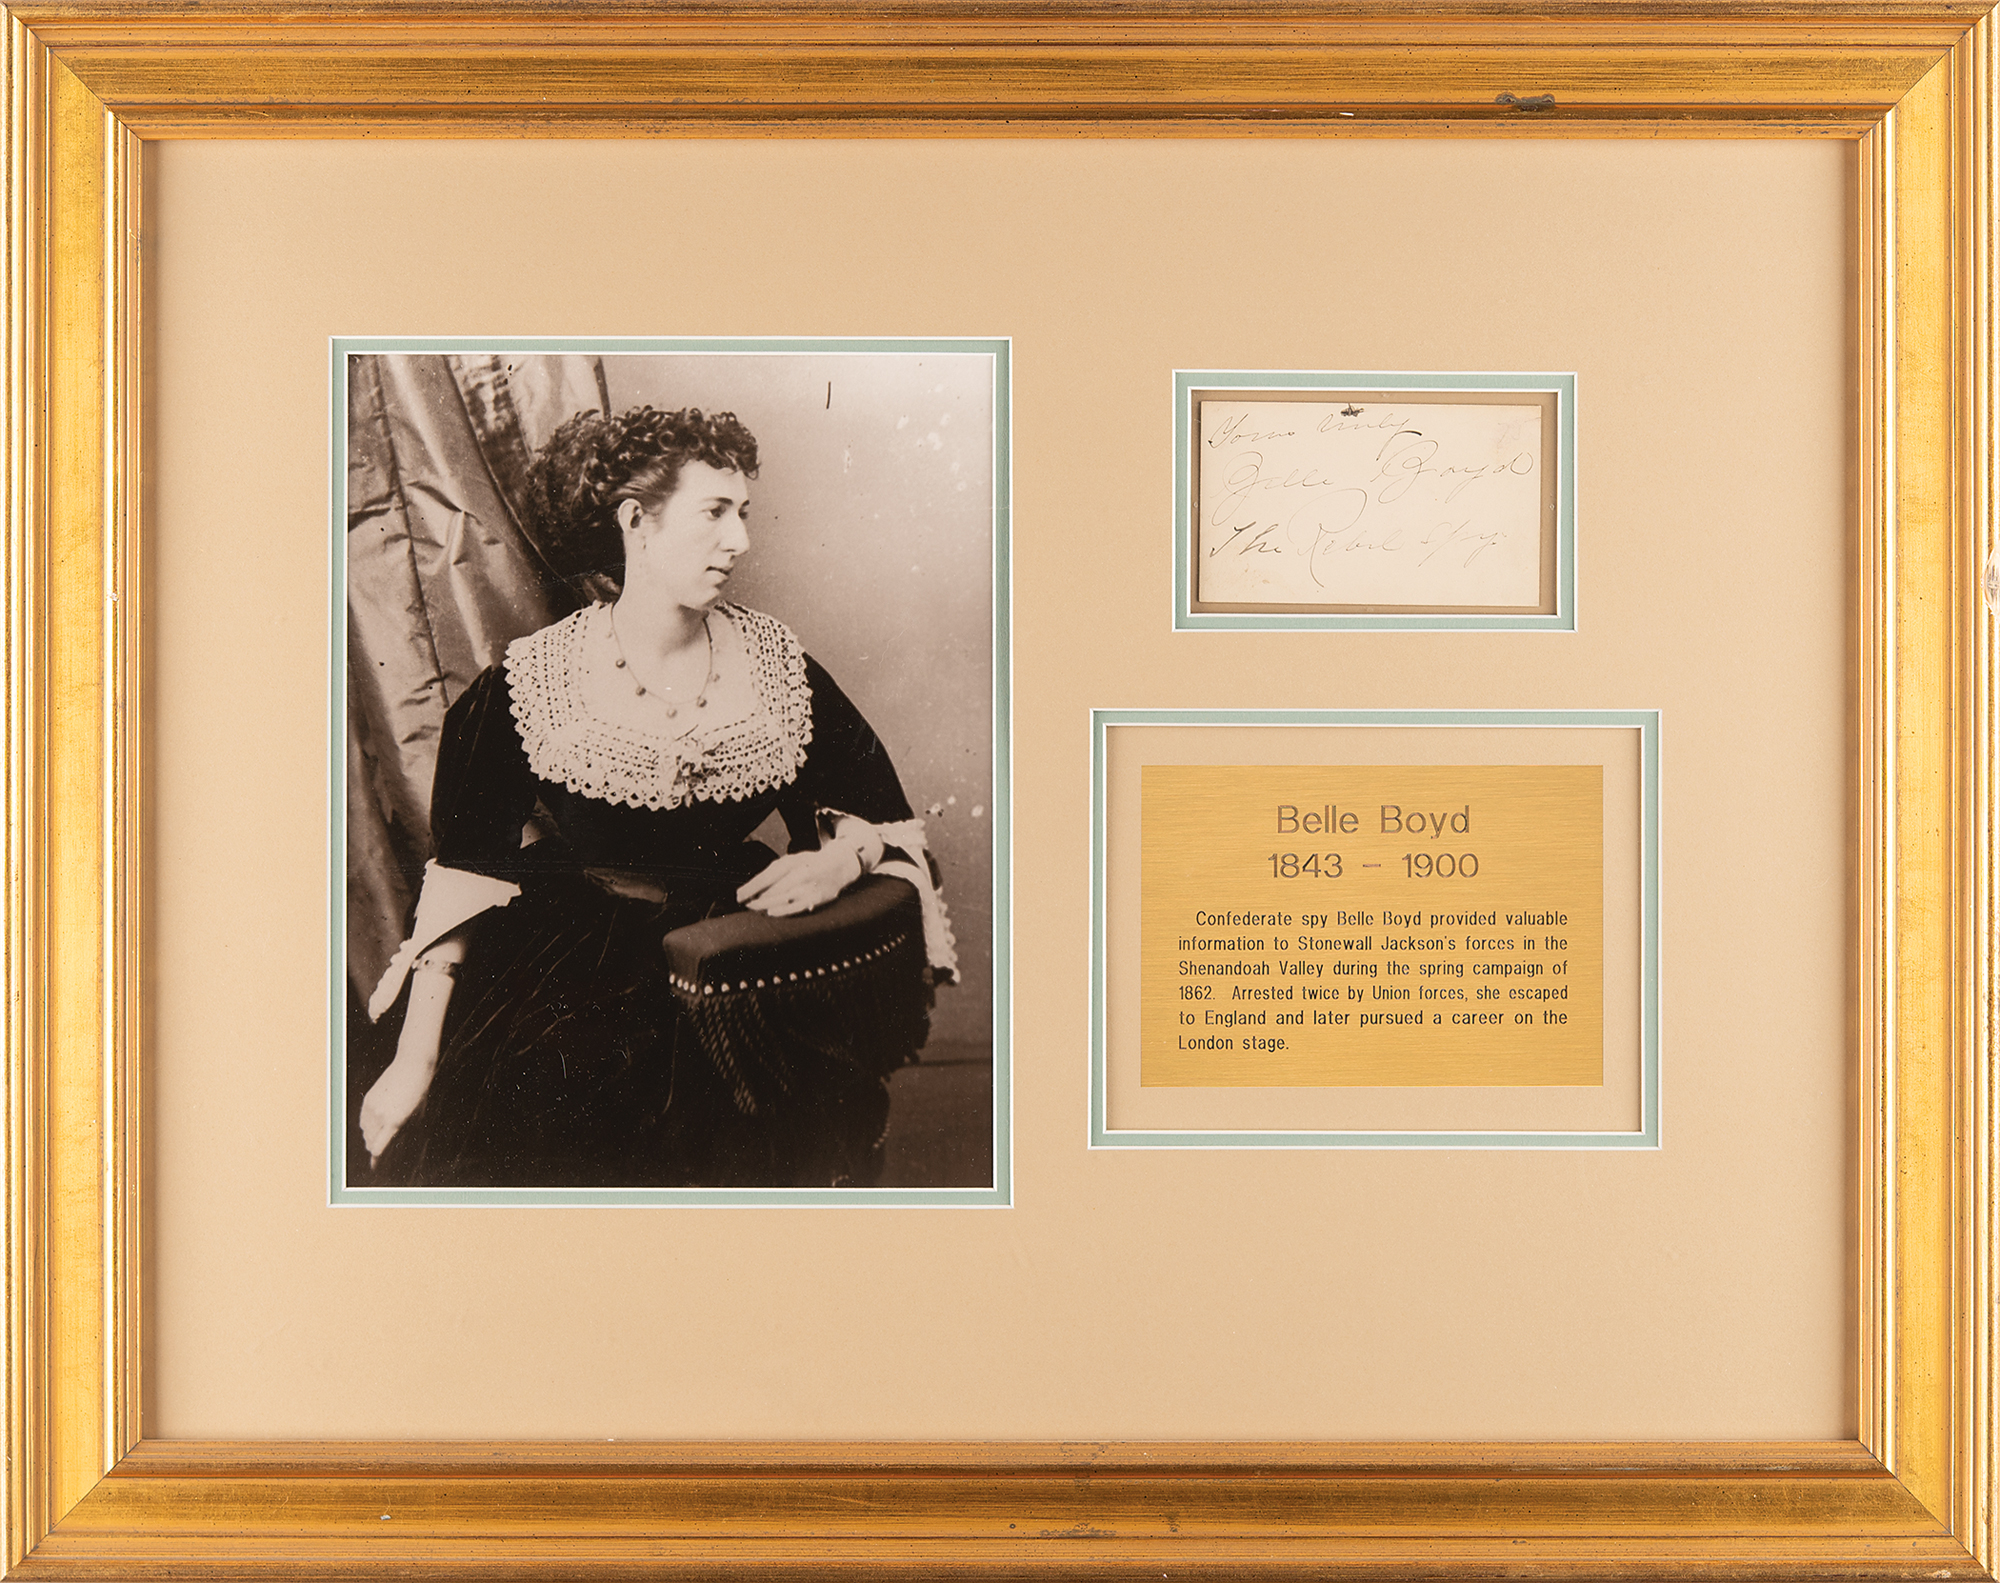 Yours truly
Belle Boyd
The Rebel Spy.
Belle Boyd
1843 - 1900
Confederate spy Belle Boyd provided valuable
information to Stonewall Jackson's forces in the
Shenandoah Valley during the spring campaign of
1862. Arrested twice by Union forces, she escaped
to England and later pursued a career on the
London stage.